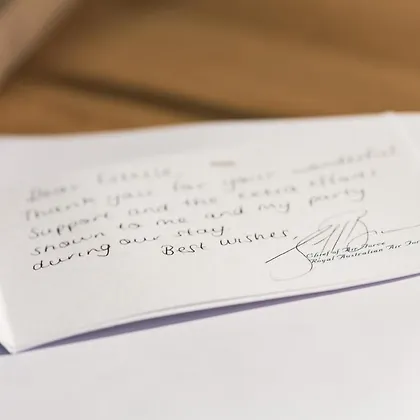 Dear
Thank you for your wonderful
support and the extra effort
shown to me and my party
during our stay.
Best wishes,
Chief of Air Force
Royal Australian Air For